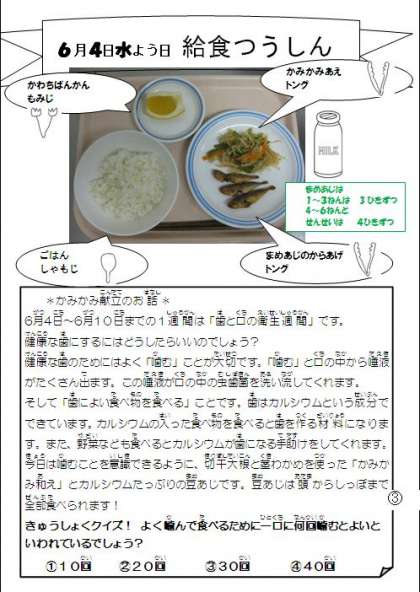 6月4日水よう日 給食つうしん
かわちばんかん
もみじ
かみかみあえ
トング
MILK
まめあじは
1～3ねんは 3びきずつ
4～6ねんと
せんせいは 4ひきずつ
ごはん
しゃもじ
まめあじのからあげ
トング
＊かみかみ献立のお話＊
6月4日～6月10日までの1週間は「歯と口の衛生週間」です。
健康な歯にするにはどうしたらいいのでしょう？
健康な歯のためにはよく「噛む」ことが大切です。「噛む」と口の中から唾液
がたくさん出ます。この唾液が口の中の虫歯菌を洗い流してくれます。
そして「歯によい食べ物を食べる」ことです。歯はカルシウムという成分で
できています。カルシウムの入った食べ物を食べると歯を作る材料になりま
す。また、野菜なども食べるとカルシウムが歯になる手助けをしてくれます。
今日は噛むことを意識できるように、切干大根と茎わかめを使った「かみか
み和え」とカルシウムたっぷりの豆あじです。豆あじは頭からしっぽまで
全部食べられます！
きゅうしょくクイズ！ よく噛んで食べるために一口に何回噛むとよいと
いわれているでしょう？
①10回 ②20回 ③30回 ④40回
③